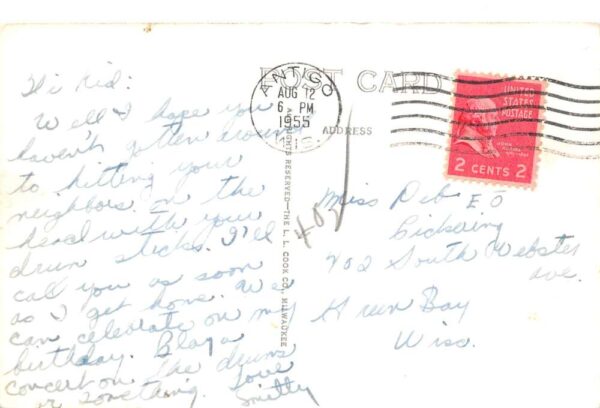 POST CARD
ANTIGO
AUG 12
6 PM
1955
WIS.
UNITED
STATES
POSTAGE
JOHN ADAMS
2 CENTS 2
ADDRESS
ALL RIGHTS RESERVED—THE L. L. COOK CO., MILWAUKEE
Hi Kid:
Well I hope you
haven't gotten around
to hitting your
neighbors on the
head with your
drum sticks. I'll
call you as soon
as I get home. We
can celebrate on my
birthday. Play a
concert on the drums
or something. Love
Smitty
402
Miss Deb
Pickering
902 South Webster
Ave.
Green Bay
Wisc.